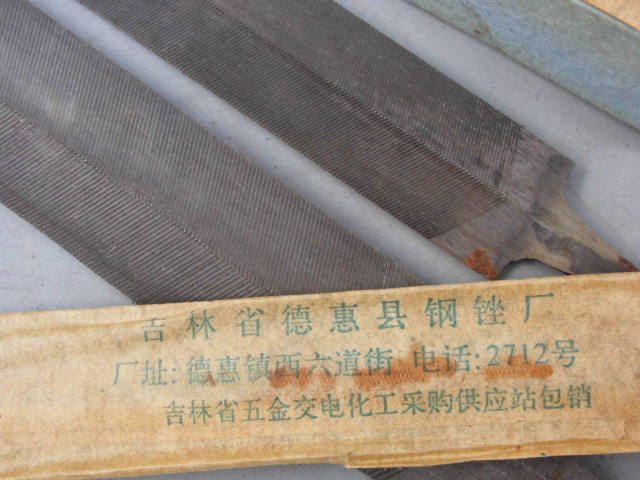 吉林省德惠县钢锉厂
厂址:德惠镇西六道街 电话:2712号
吉林省五金交电化工采购供应站包销